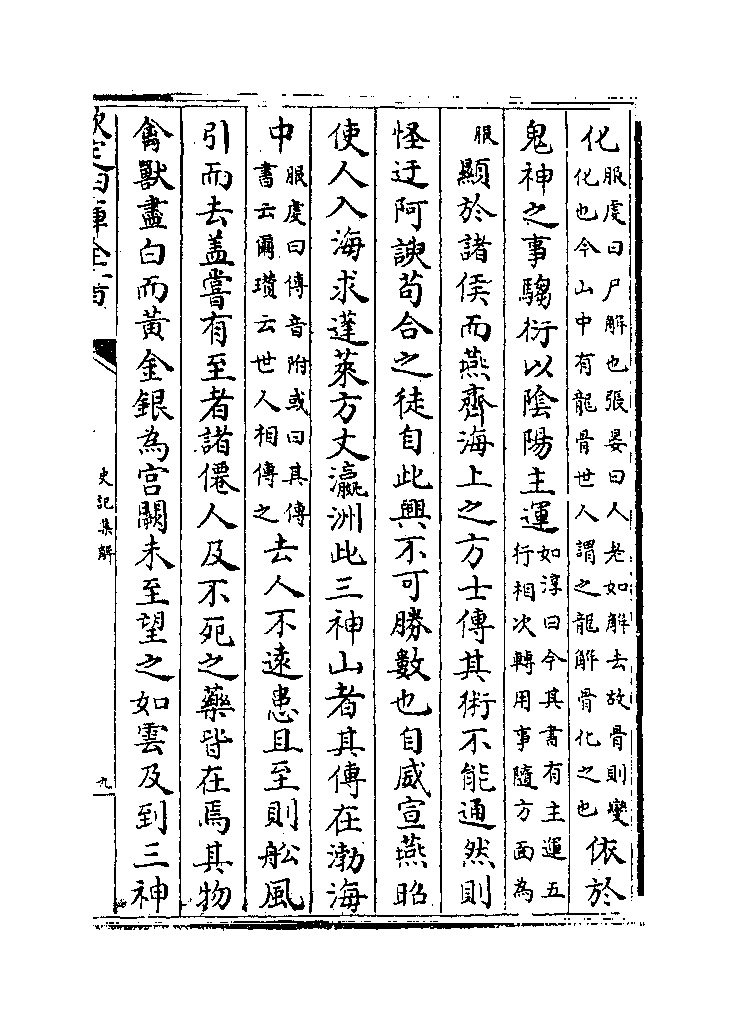 化服虔曰尸解也張晏曰人老如解去故骨則變化也今山中有龍骨世人謂之龍解骨化之也依於
鬼神之事騶衍以陰陽主運如淳曰今其書有主運五行相次轉用事隨方面為
服顯於諸侯而燕齊海上之方士傳其術不能通然則
怪迂阿諛苟合之徒自此興不可勝數也自威宣燕昭
使人入海求蓬萊方丈瀛洲此三神山者其傳在渤海
中服虔曰傳音附或曰其傳書云爾瓚云世人相傳之去人不遠患且至則舩風
引而去盖嘗有至者諸僊人及不死之藥皆在焉其物
禽獸盡白而黃金銀為宫闕未至望之如雲及到三神
史記集解
九